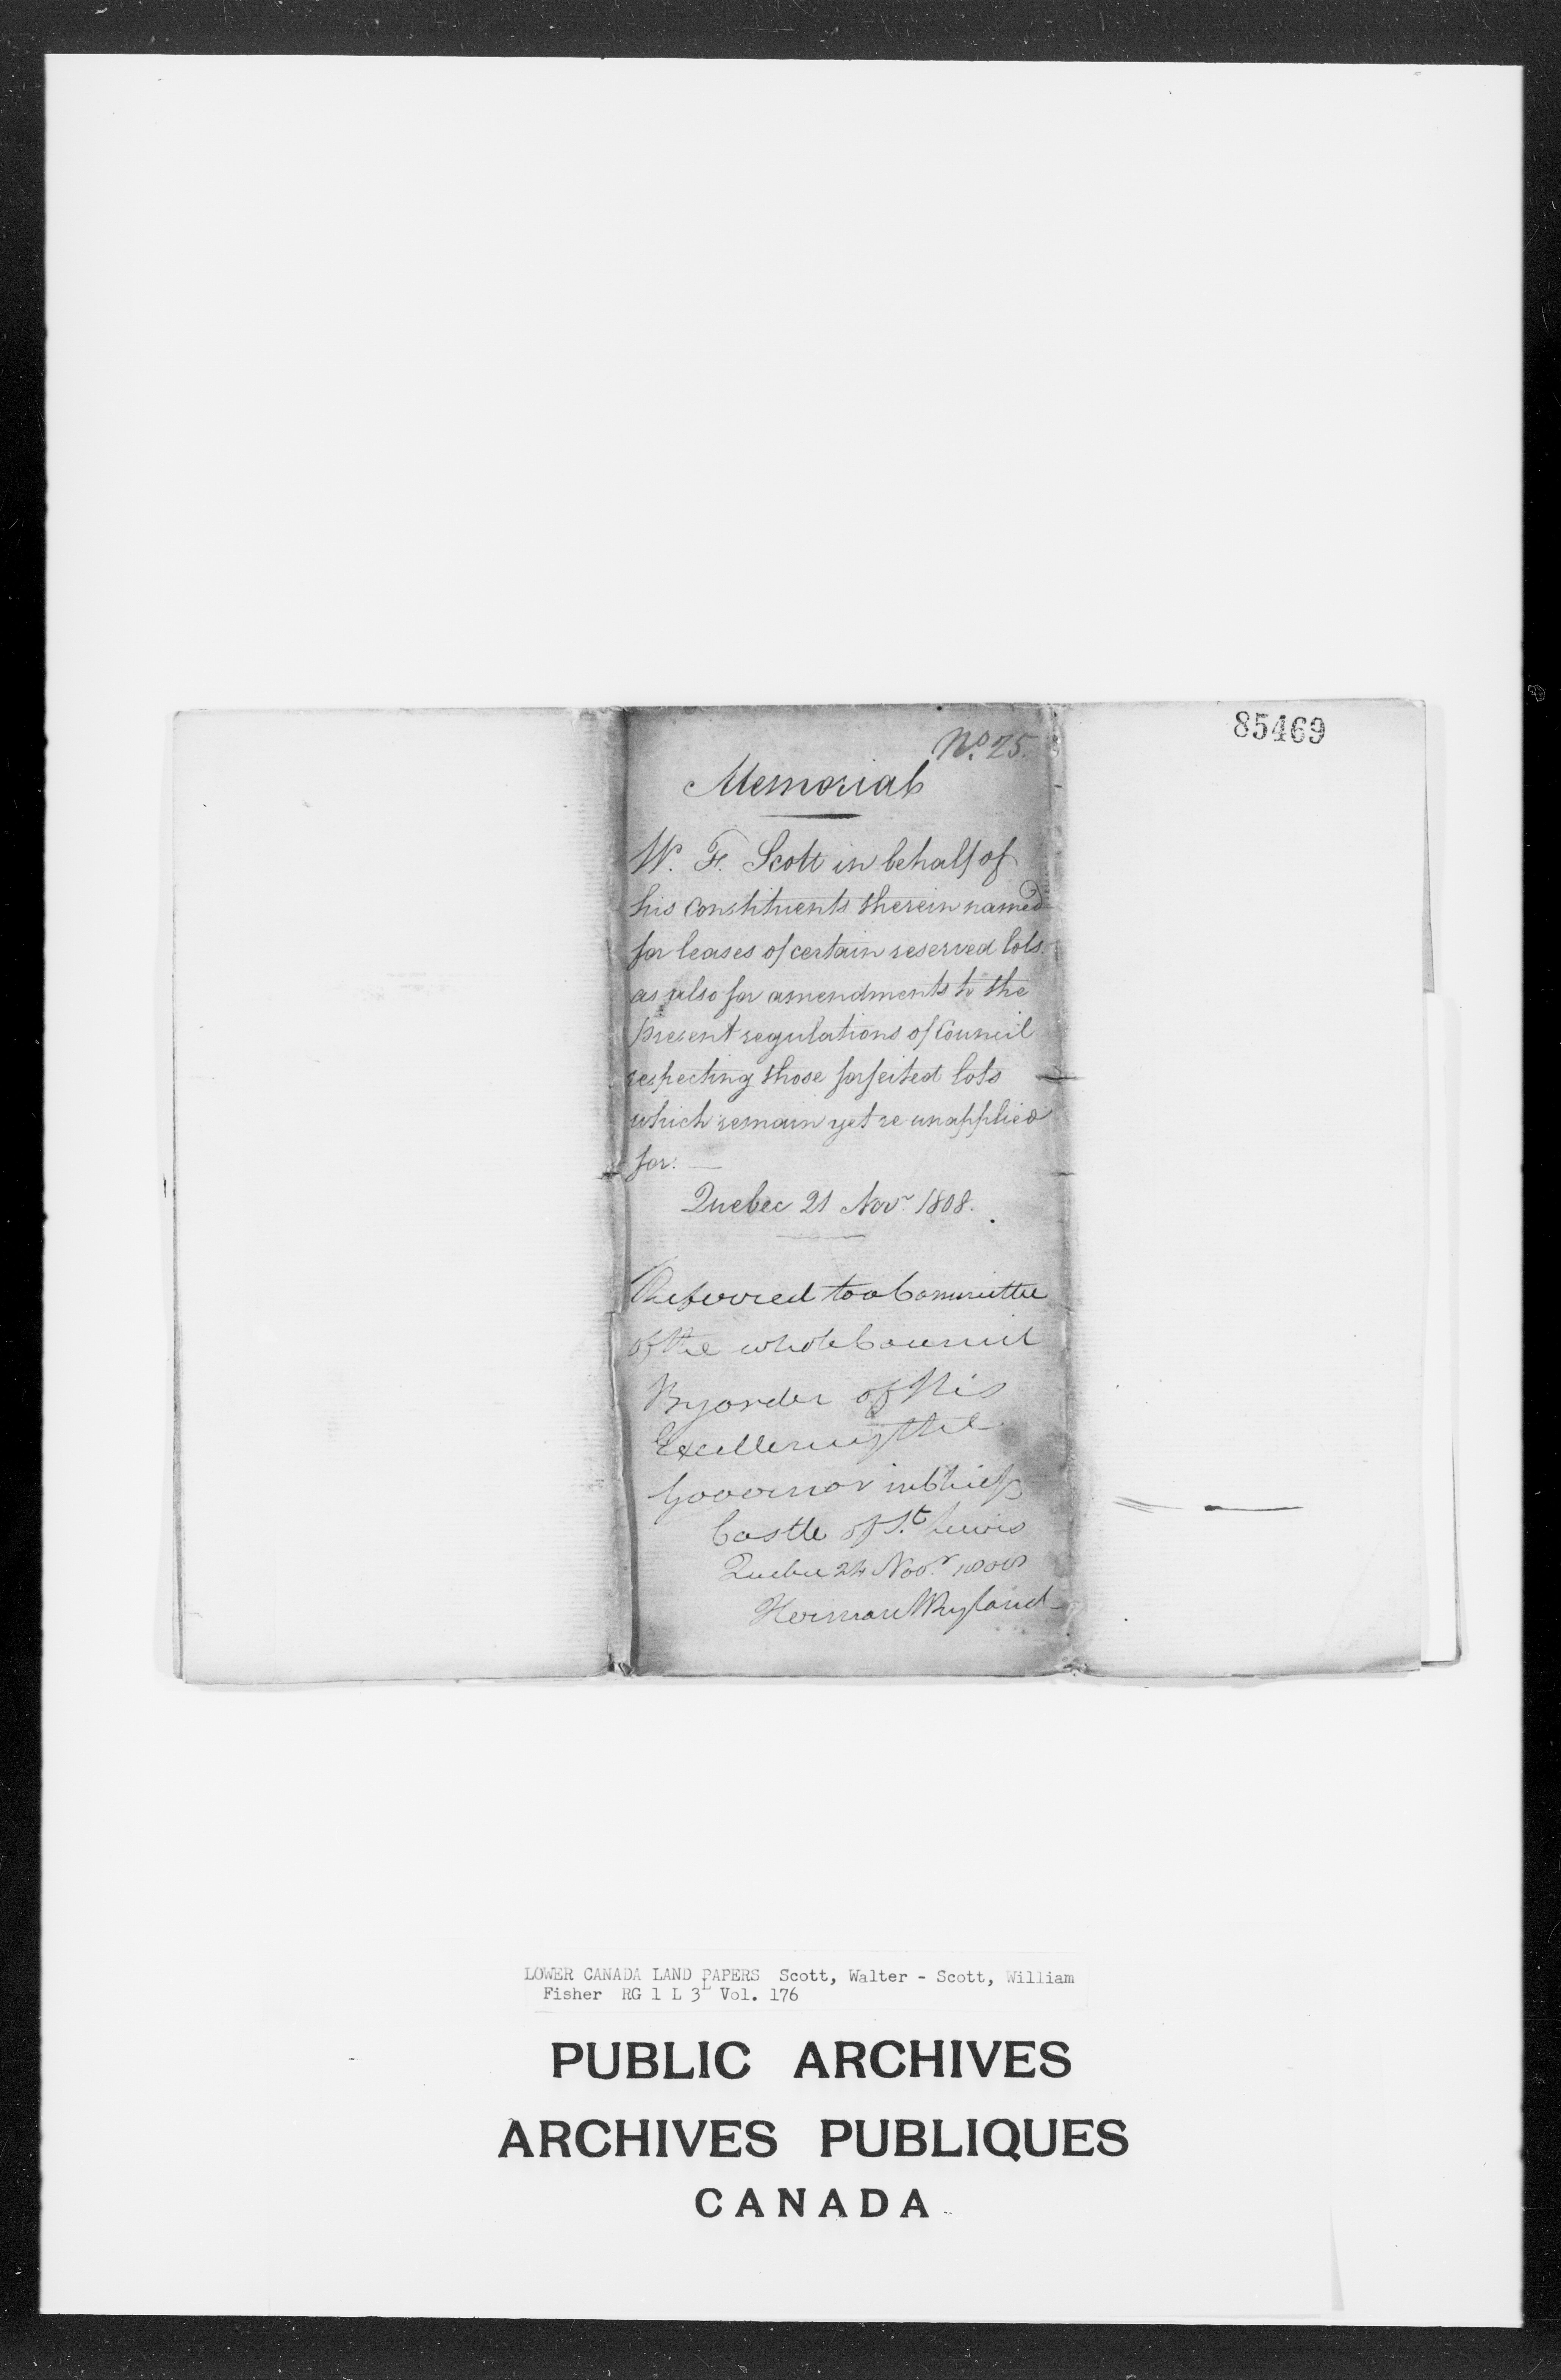 85469
No. 25.
Memorial
W. F. Scott in behalf of
his constituents therein named
for leases of certain reserved lots.
as also for amendments to the
present regulations of Council
respecting those forfeited lots
which remain yet re unapplied
for.
Quebec 21 Novr 1808.
Referred to a Committee
of the whole Council
By order of His
Excellency the
Governor in Chief
Castle of St. Lewis
Quebec 24 Novr. 1808
Herman W Ryland
LOWER CANADA LAND PAPERS Scott, Walter - Scott, William
Fisher RG 1 L 3L Vol. 176
PUBLIC ARCHIVES
ARCHIVES PUBLIQUES
CANADA